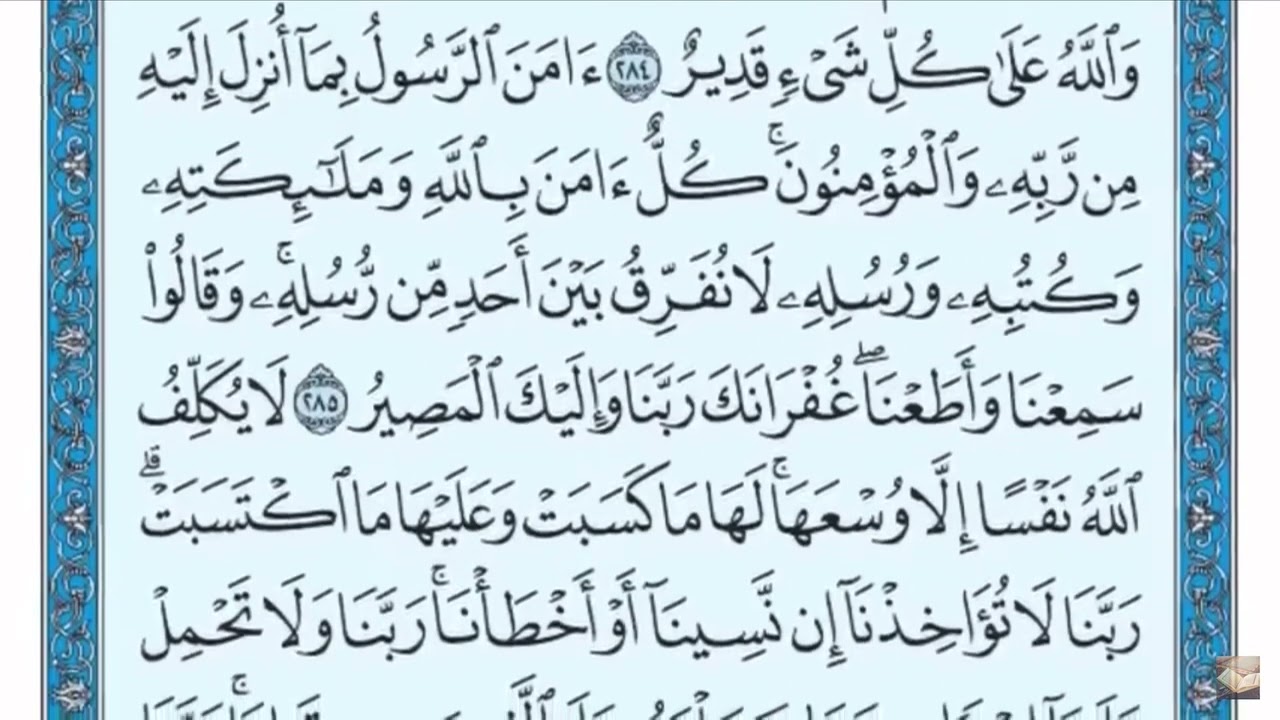 وَٱللَّهُ عَلَىٰ كُلِّ شَىْءٍ قَدِيرٌ ٢٨٤ ءَامَنَ ٱلرَّسُولُ بِمَآ أُنزِلَ إِلَيْهِ
مِن رَّبِّهِۦ وَٱلْمُؤْمِنُونَ ۚ كُلٌّ ءَامَنَ بِٱللَّهِ وَمَلَـٰٓئِكَتِهِۦ
وَكُتُبِهِۦ وَرُسُلِهِۦ لَا نُفَرِّقُ بَيْنَ أَحَدٍ مِّن رُّسُلِهِۦ ۚ وَقَالُوا۟
سَمِعْنَا وَأَطَعْنَا ۖ غُفْرَانَكَ رَبَّنَا وَإِلَيْكَ ٱلْمَصِيرُ ٢٨٥ لَا يُكَلِّفُ
ٱللَّهُ نَفْسًا إِلَّا وُسْعَهَا ۚ لَهَا مَا كَسَبَتْ وَعَلَيْهَا مَا ٱكْتَسَبَتْ ۗ
رَبَّنَا لَا تُؤَاخِذْنَآ إِن نَّسِينَآ أَوْ أَخْطَأْنَا ۚ رَبَّنَا وَلَا تَحْمِلْ